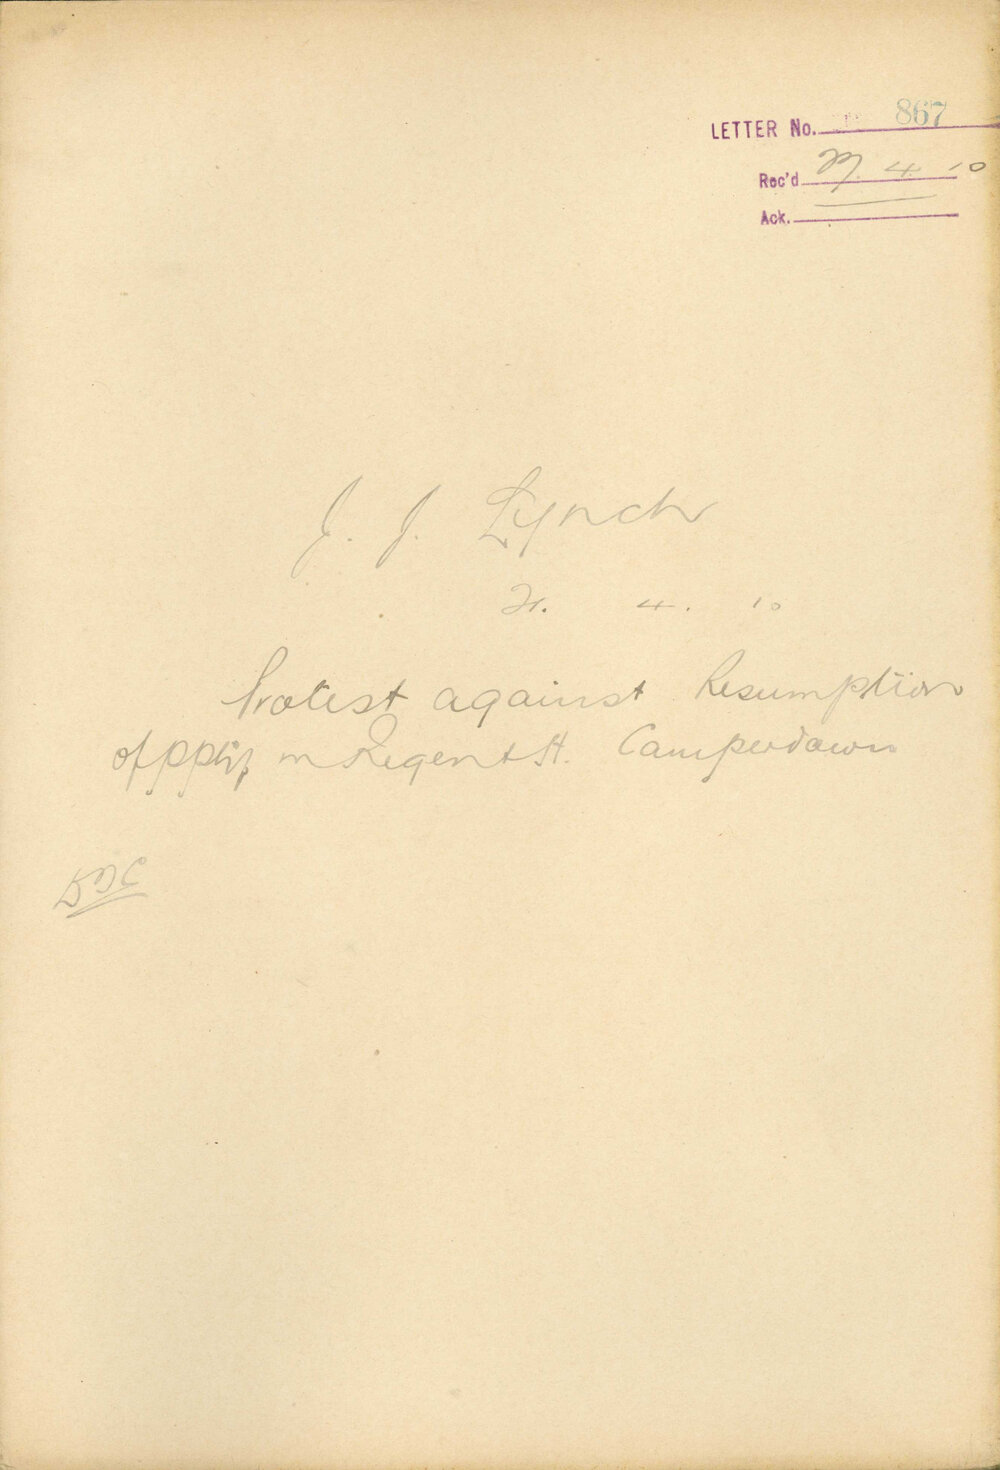 LETTER No. 867
Rec'd 4. 10
Ack.
J. J. Lynch
21. 4. 10
Protest against Resumption
of ppty in Regent St. Camperdown